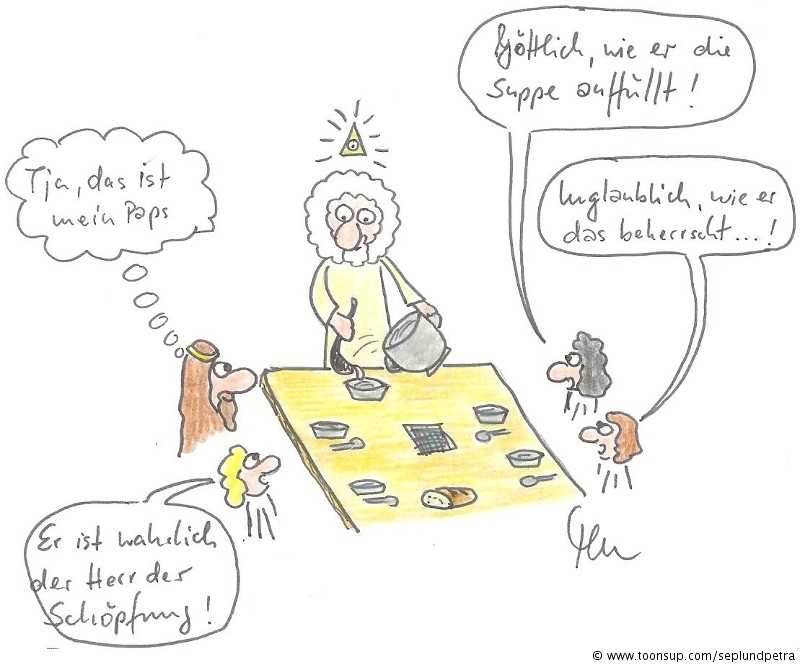 Göttlich, wie er die
Suppe auffüllt!
Unglaublich, wie er
das beherrscht...!
Tja, das ist
mein Paps
Er ist wahrlich
der Herr der
Schöpfung!
© www.toonsup.com/seplundpetra